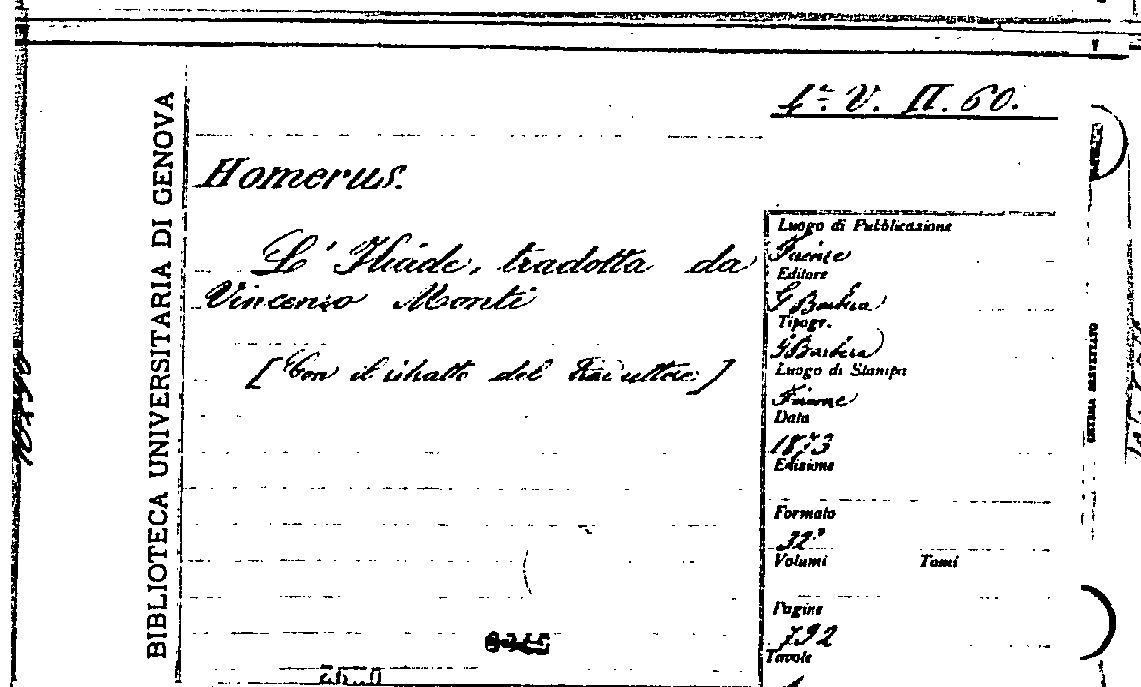 4ª. V. II. 60.
BIBLIOTECA UNIVERSITARIA DI GENOVA
Homerus.
L'Iliade, tradotta da
Vincenzo Monti
[Con il ritratto del Traduttore]
Luogo di Pubblicazione
Firenze
Editore
G Barbèra
Tipogr.
G Barbèra
Luogo di Stampa
Firenze
Data
1873
Edizione
Formato
32º
Volumi Tomi
Pagine
792
Tavole
1